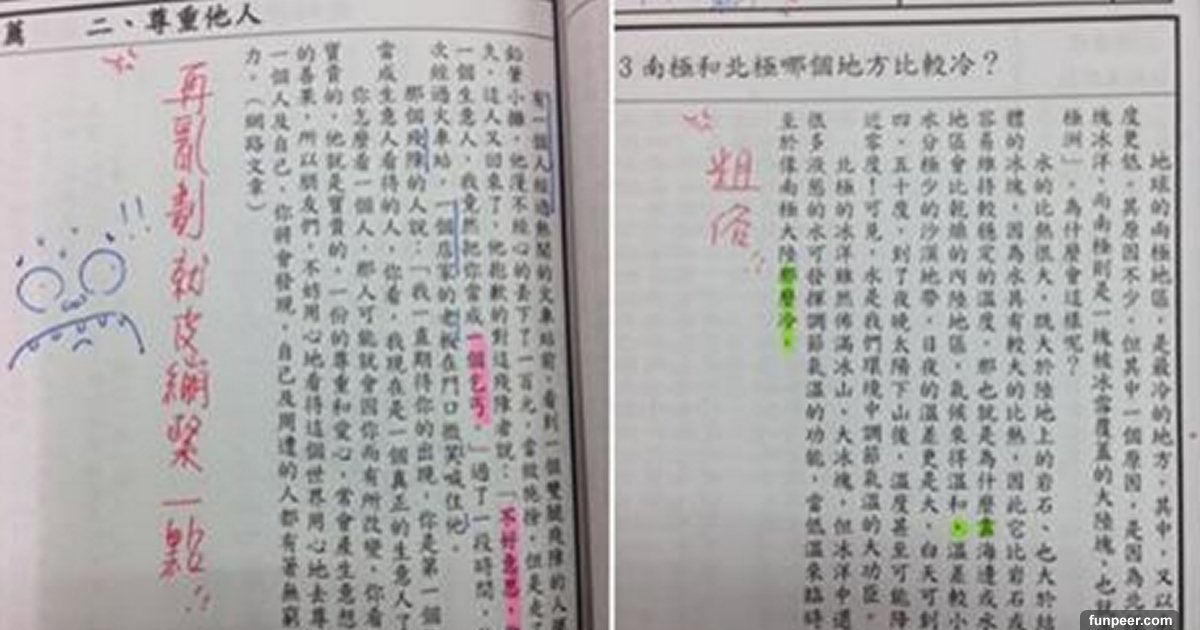 篇　二、尊重他人
有一個人經過熱鬧的火車站前，看到一個雙腿殘障的人擺
鉛筆小攤，他漫不經心的丟下了一百元，當做施捨。但是走了
久，這人又回來了，他抱歉的對這殘障者說：「不好意思，
一個生意人，我竟然把你當成一個乞丐。」過了一段時間，
次經過火車站，一個店家的老闆在門口微笑喊住他。
那個殘障的人說：「我一直期待你的出現，你是第一個
當成生意人看待的人，你看，我現在是一個真正的生意人了
你怎麼看一個人，那人可能就會因你而有所改變，你看
寶貴的，他就是寶貴的，一份的尊重和愛心，常會產生意想
的善果，所以朋友們，不妨用心地看待這個世界用心地去尊
一個人及自己，你將會發現，自己及周遭的人都有著無窮
力。（網路文章）
再亂劃就皮繃緊一點!!
!!
3 南極和北極哪個地方比較冷？
地球的兩極地區，是最冷的地方，其中，又以
度更低。其原因不少，但其中一個原因，是因為北
塊冰洋，而南極則是一塊被冰雪覆蓋的大陸塊，也就
極洲」。為什麼會這樣呢？
水的比熱很大，既大於陸地上的岩石、也大於結
體的冰塊，因為水具有較大的比熱，因此它比岩石或
容易維持較穩定的溫度。那也就是為什麼靠海邊或水
地區會比乾燥的內陸地區，氣候來得溫和。溫差較小
水分極少的沙漠地帶，日夜的溫差更是大，白天可到
四、五十度，到了夜晚太陽下山後，溫度甚至可能降
近零度！可見，水是我們環境中調節氣溫的大功臣。
北極的冰洋雖然佈滿冰山、大冰塊，但冰洋中還
很多液態的水可發揮調節氣溫的功能，當低溫來臨時
至於像南極大陸那麼冷。
粗俗!!
funpeer.com